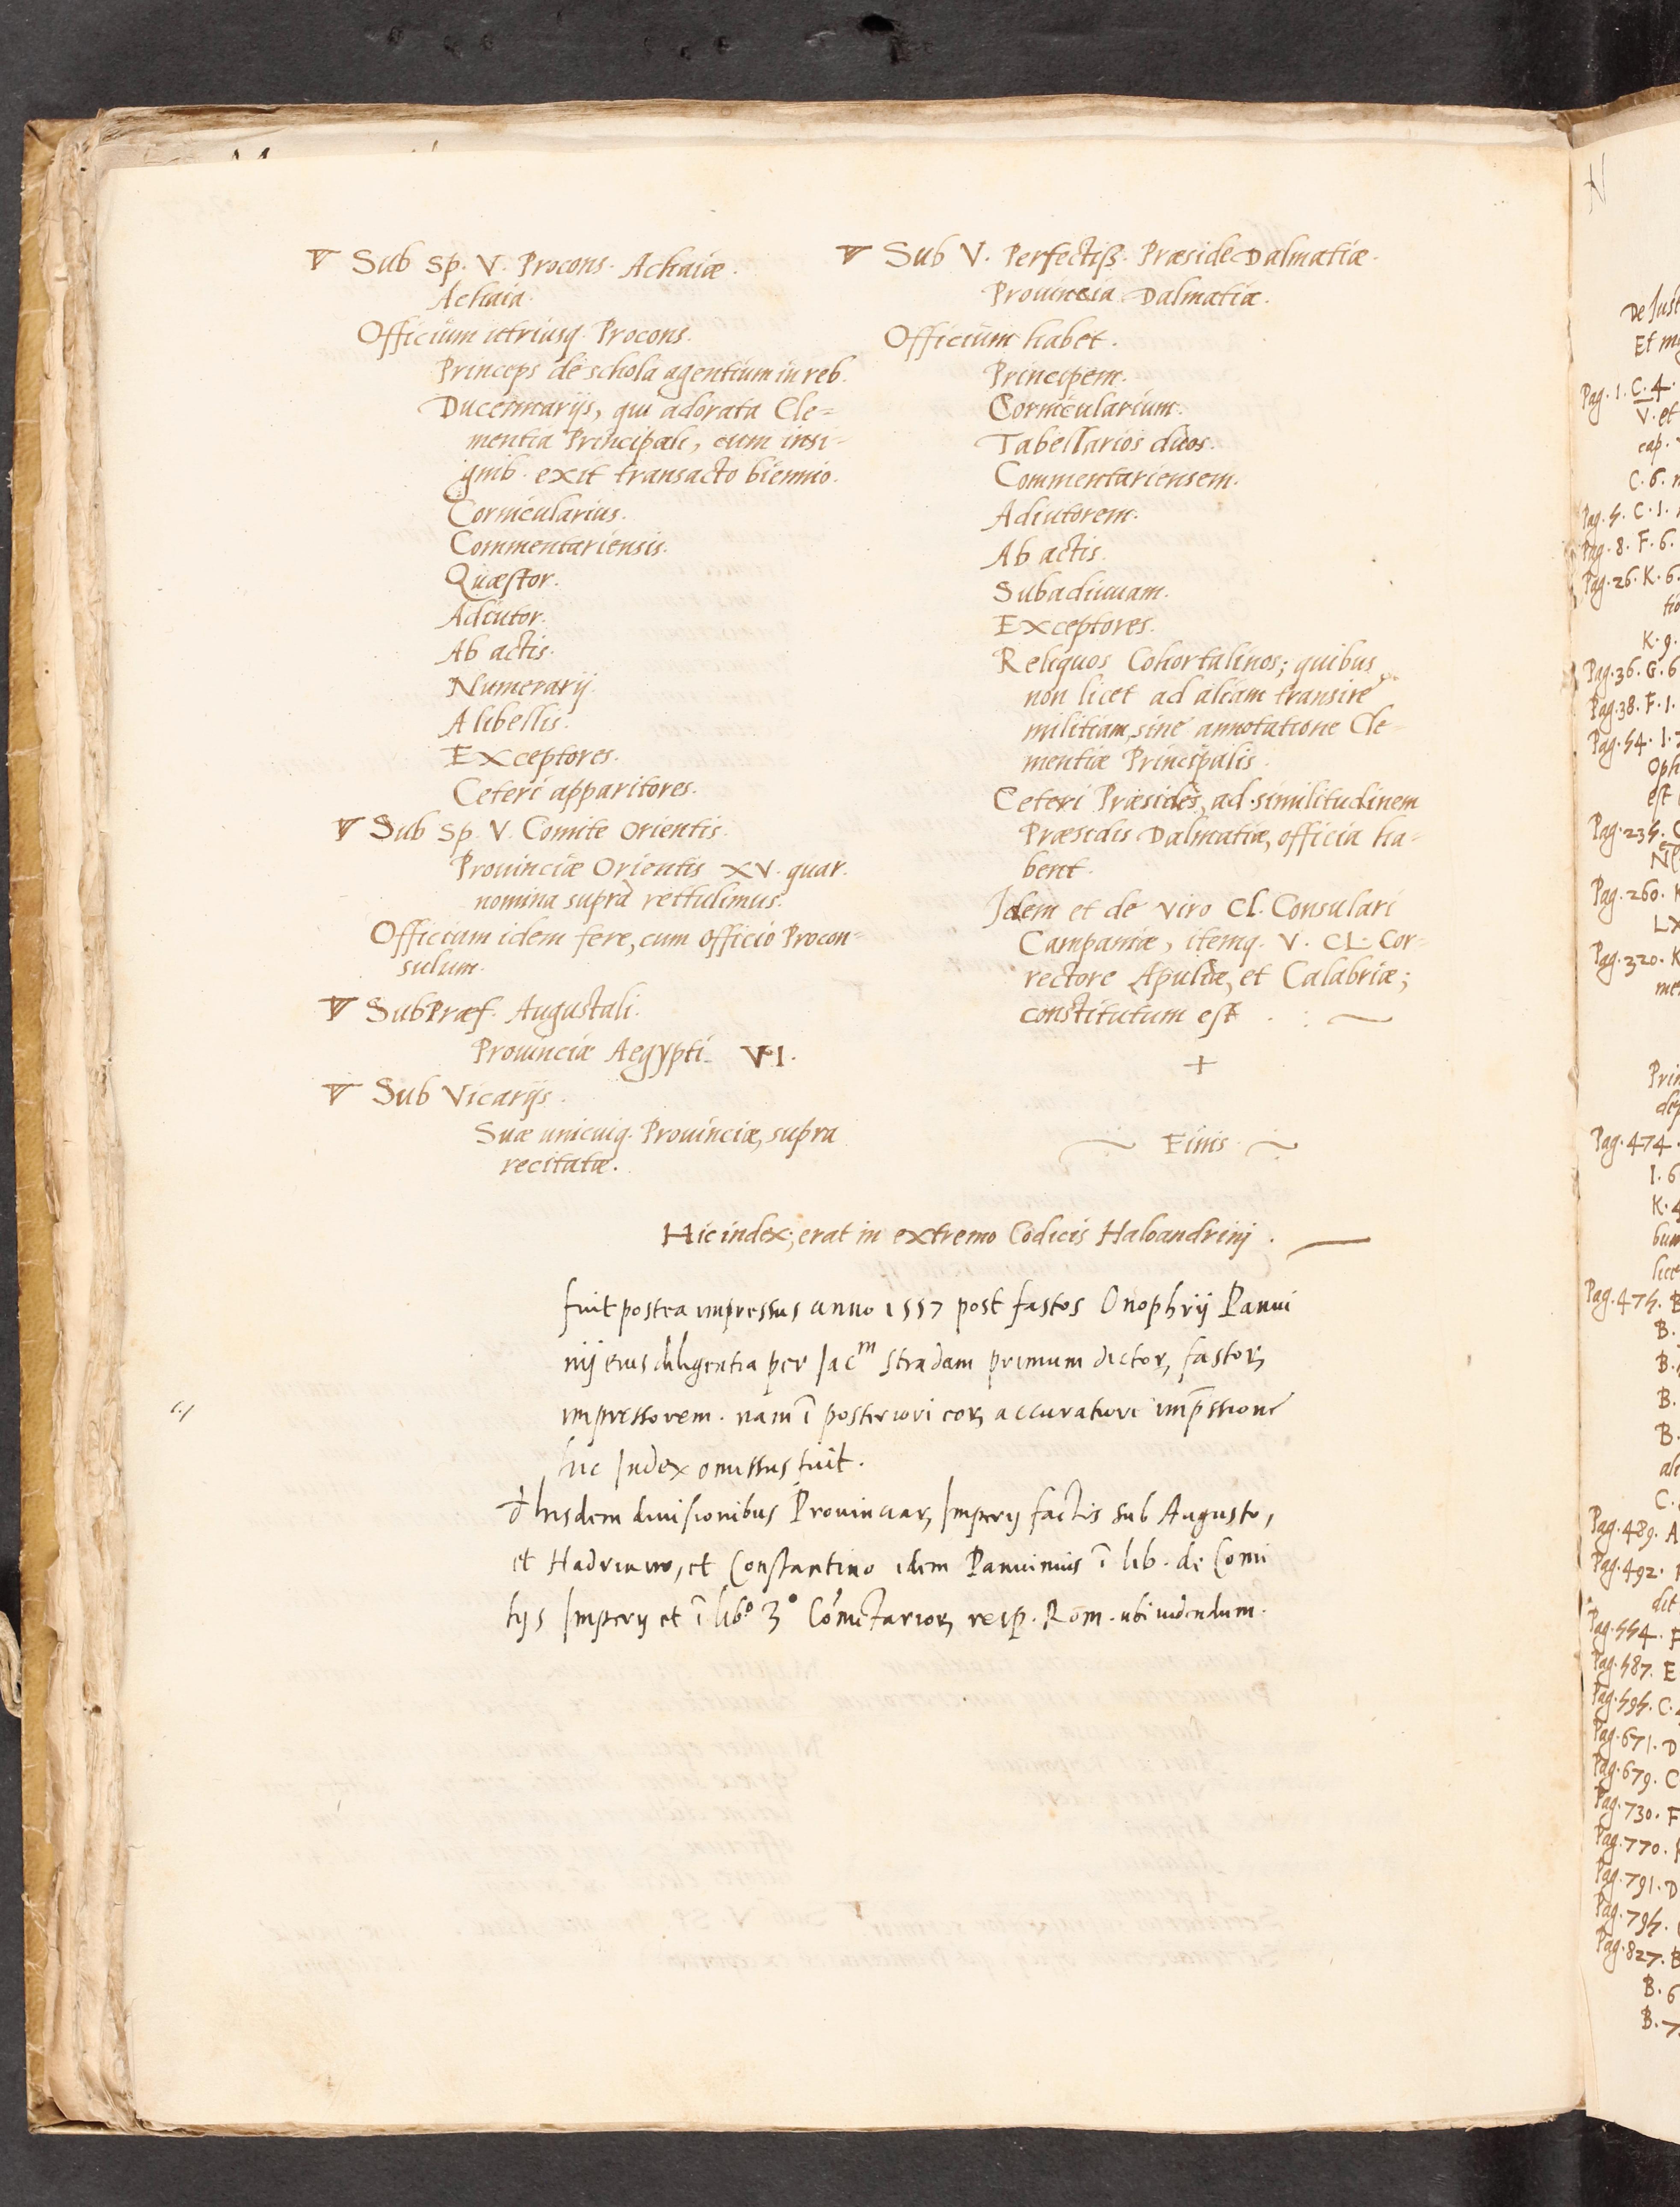 Sub Sp. V. Procons. Achaiæ.
Achaia.
Officium utriusq. Procons.
Princeps de schola agentium in reb.
Ducennarijs, qui adorata Cle=
mentia Principali, cum insi=
gnib. exit transacto biennio.
Cornicularius.
Commentariensis.
Quæstor.
Adiutor.
Ab actis.
Numerarij.
A libellis.
Exceptores.
Ceteri apparitores.
Sub Sp. V. Comite Orientis.
Prouinciæ Orientis XV. quar.
nomina supra rettulimus.
Officium idem fere, cum officio Procon=
sulum.
Sub Præf. Augustali.
Prouinciæ Aegypti. VI.
Sub Vicarijs.
Suæ unicuiq. Prouinciæ, supra
recitatæ.
Sub V. Perfectiss. Præside Dalmatiæ.
Prouincia Dalmatiæ.
Officium habet.
Principem.
Cornicularium.
Tabellarios duos.
Commentariensem.
Adiutorem.
Ab actis.
Subadiuuam.
Exceptores.
Reliquos Cohortalinos; quibus
non licet ad aliam transire
militiam, sine annotatione Cle=
mentiæ Principalis.
Ceteri Præsides, ad similitudinem
Præsidis Dalmatiæ, officia ha=
bent.
Idem et de viro Cl. Consulari
Campaniæ, itemq. V. CL. Cor=
rectore Apuliæ, et Calabriæ;
constitutum est.
+
Finis
Hic index, erat in extremo Codicis Haloandrinij.
fuit postea impressus anno 1557 post fastos Onophrij Panui
nij eius diligentia per Iacᵐ Stradam primum dictoꝝ fastoꝝ
impressorem. nam ī posteriori eoꝝ accuratiori imp̄ssione
hic Index omissus fuit.
hisdem diuisionibus Prouinciaꝝ Imperij factis sub Augusto,
et Hadriano, et Constantino idem Panuinius ī lib. de Comi
tijs Imperij et ī libº 3º Cōmētarioꝝ reip. Rom. ubi uidendum.
N
De Just
Pag. 1. C. 4
V. et
cap.
C. 6.
Pag. 5. C. 1.
Pag. 8. F. 6.
Pag. 26. K. 6.
K. 9.
Pag. 36. G. 6
Pag. 38. F. 1.
Pag. 54. I.
Pag. 235.
Pag. 260.
LX
Pag. 320. K
Pag. 474.
I. 6
K. 4
Pag. 475. B
B.
B.
B.
B.
C.
Pag. 489. A
Pag. 492.
Pag. 554. F
Pag. 587. E
Pag. 595. C.
Pag. 671. D
Pag. 679. C
Pag. 730. F
Pag. 770.
Pag. 791. D
Pag. 795.
Pag. 827. B
B. 6
B. 7.